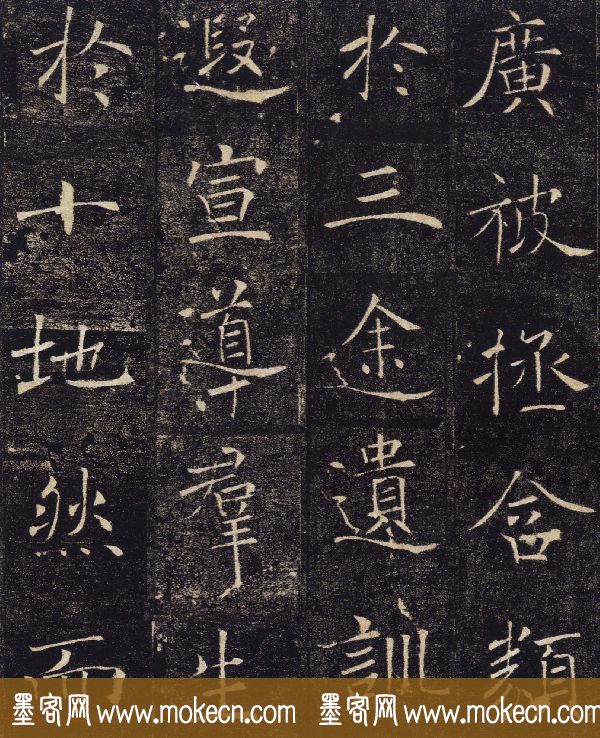 廣被拯含類
於三途遺訓
遐宣導羣生
於十地然而
墨客网 www.mokecn.com 墨客网 www.mokecn.com